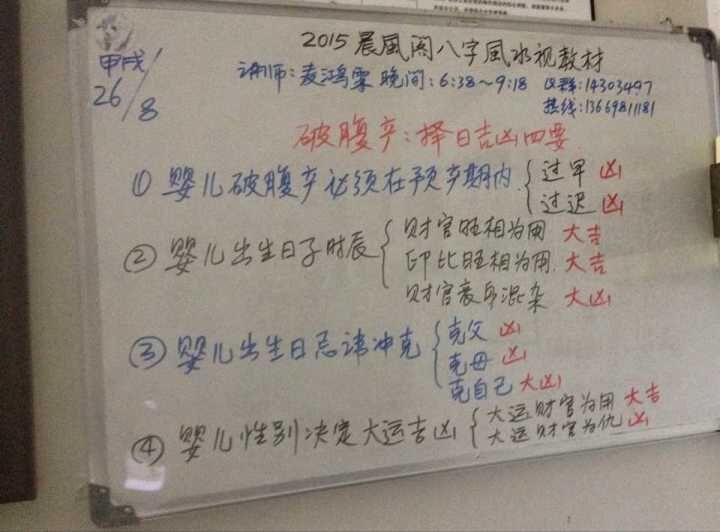 2015晨風阁八字風水视教材
甲戌
26/8
讲师:凌鸿霖 晚间:6:38~9:18 Q群:14303497
热线:13669811181
破腹产:择日吉凶四要
① 婴儿破腹产必须在予产期内 { 过早 凶
过迟 凶
② 婴儿出生日子时辰 { 财官旺相为用 大吉
印比旺相为用 大吉
财官衰 混杂 大凶
③ 婴儿出生日忌讳冲克 { 克父 凶
克母 凶
克自己 大凶
④ 婴儿性别决定大运吉凶 { 大运财官为用 大吉
大运财官为仇 凶